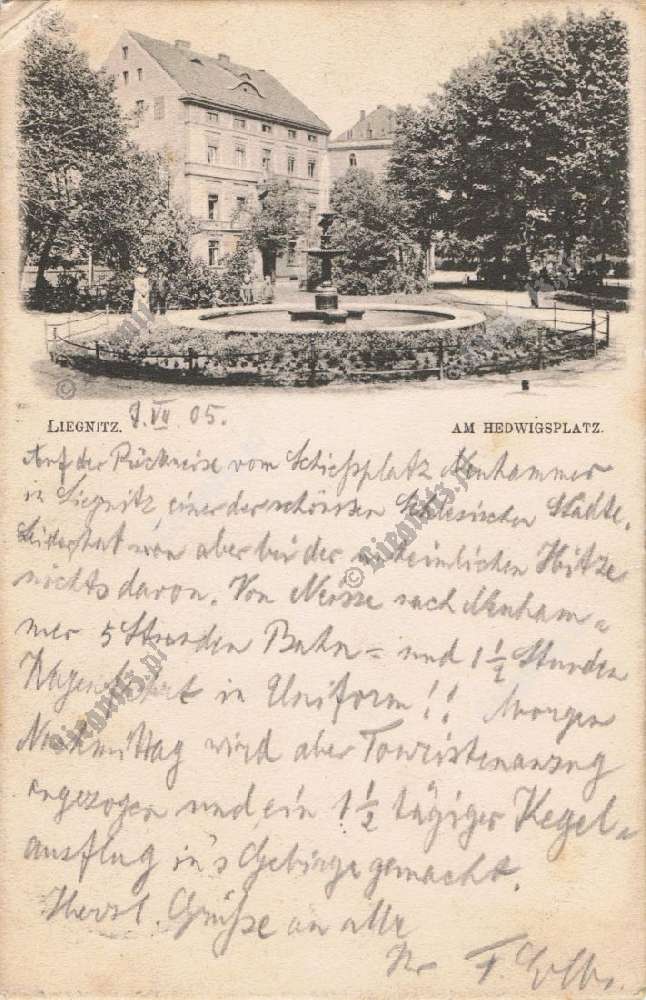 LIEGNITZ. 9. VII 05. AM HEDWIGSPLATZ.
Auf der Rückreise vom Schießplatz Neuhammer
in Liegnitz, einer der schönsten Schlesischen Städte.
Leider hat man aber bei der unheimlichen Hitze
nichts davon. Von Neisse nach Neuham=
mer 5 Stunden Bahn= und 1 1/2 Stunden
Wagenfahrt in Uniform!! Morgen
Nachmittag wird aber Touristenanzug
angezogen und ein 1 1/2 tägiger Kegel=
ausflug in's Gebirge gemacht.
Herzl. Grüße an alle
© Liegnitz.pl
© Liegnitz.pl
Liegnitz.pl